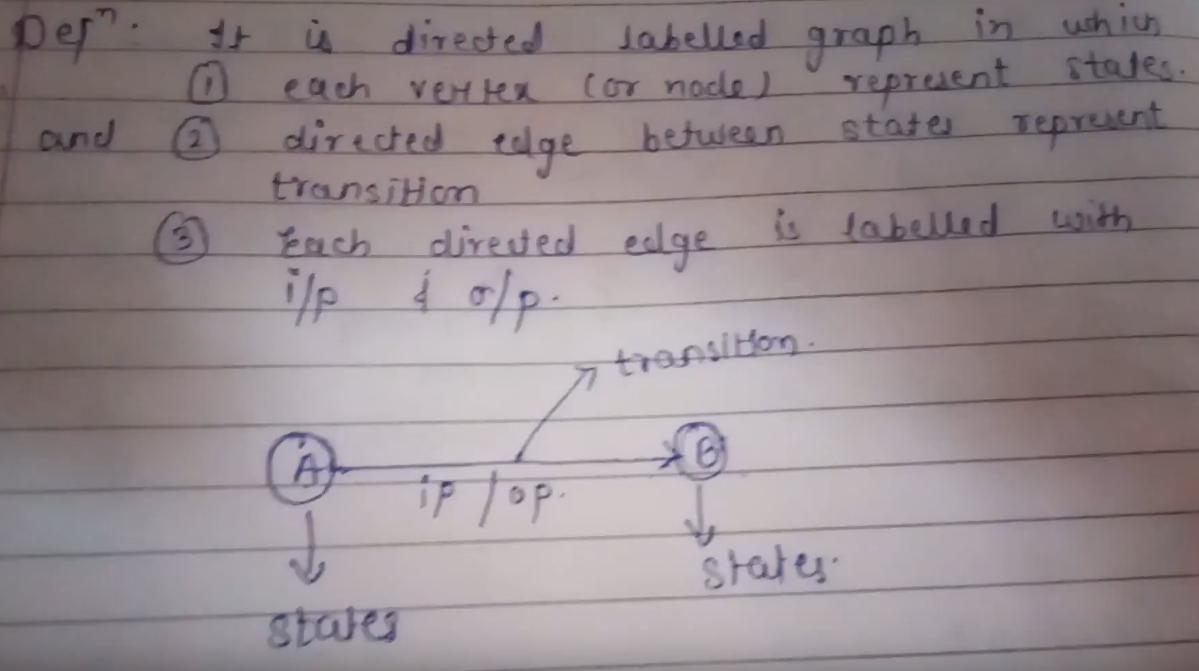 Defⁿ. It is directed labelled graph in which
① each vertex (or node) represent states.
and ② directed edge between states represent
transition
③ Each directed edge is labelled with
i/p & o/p.
transition.
A B
ip / op.
states.
states